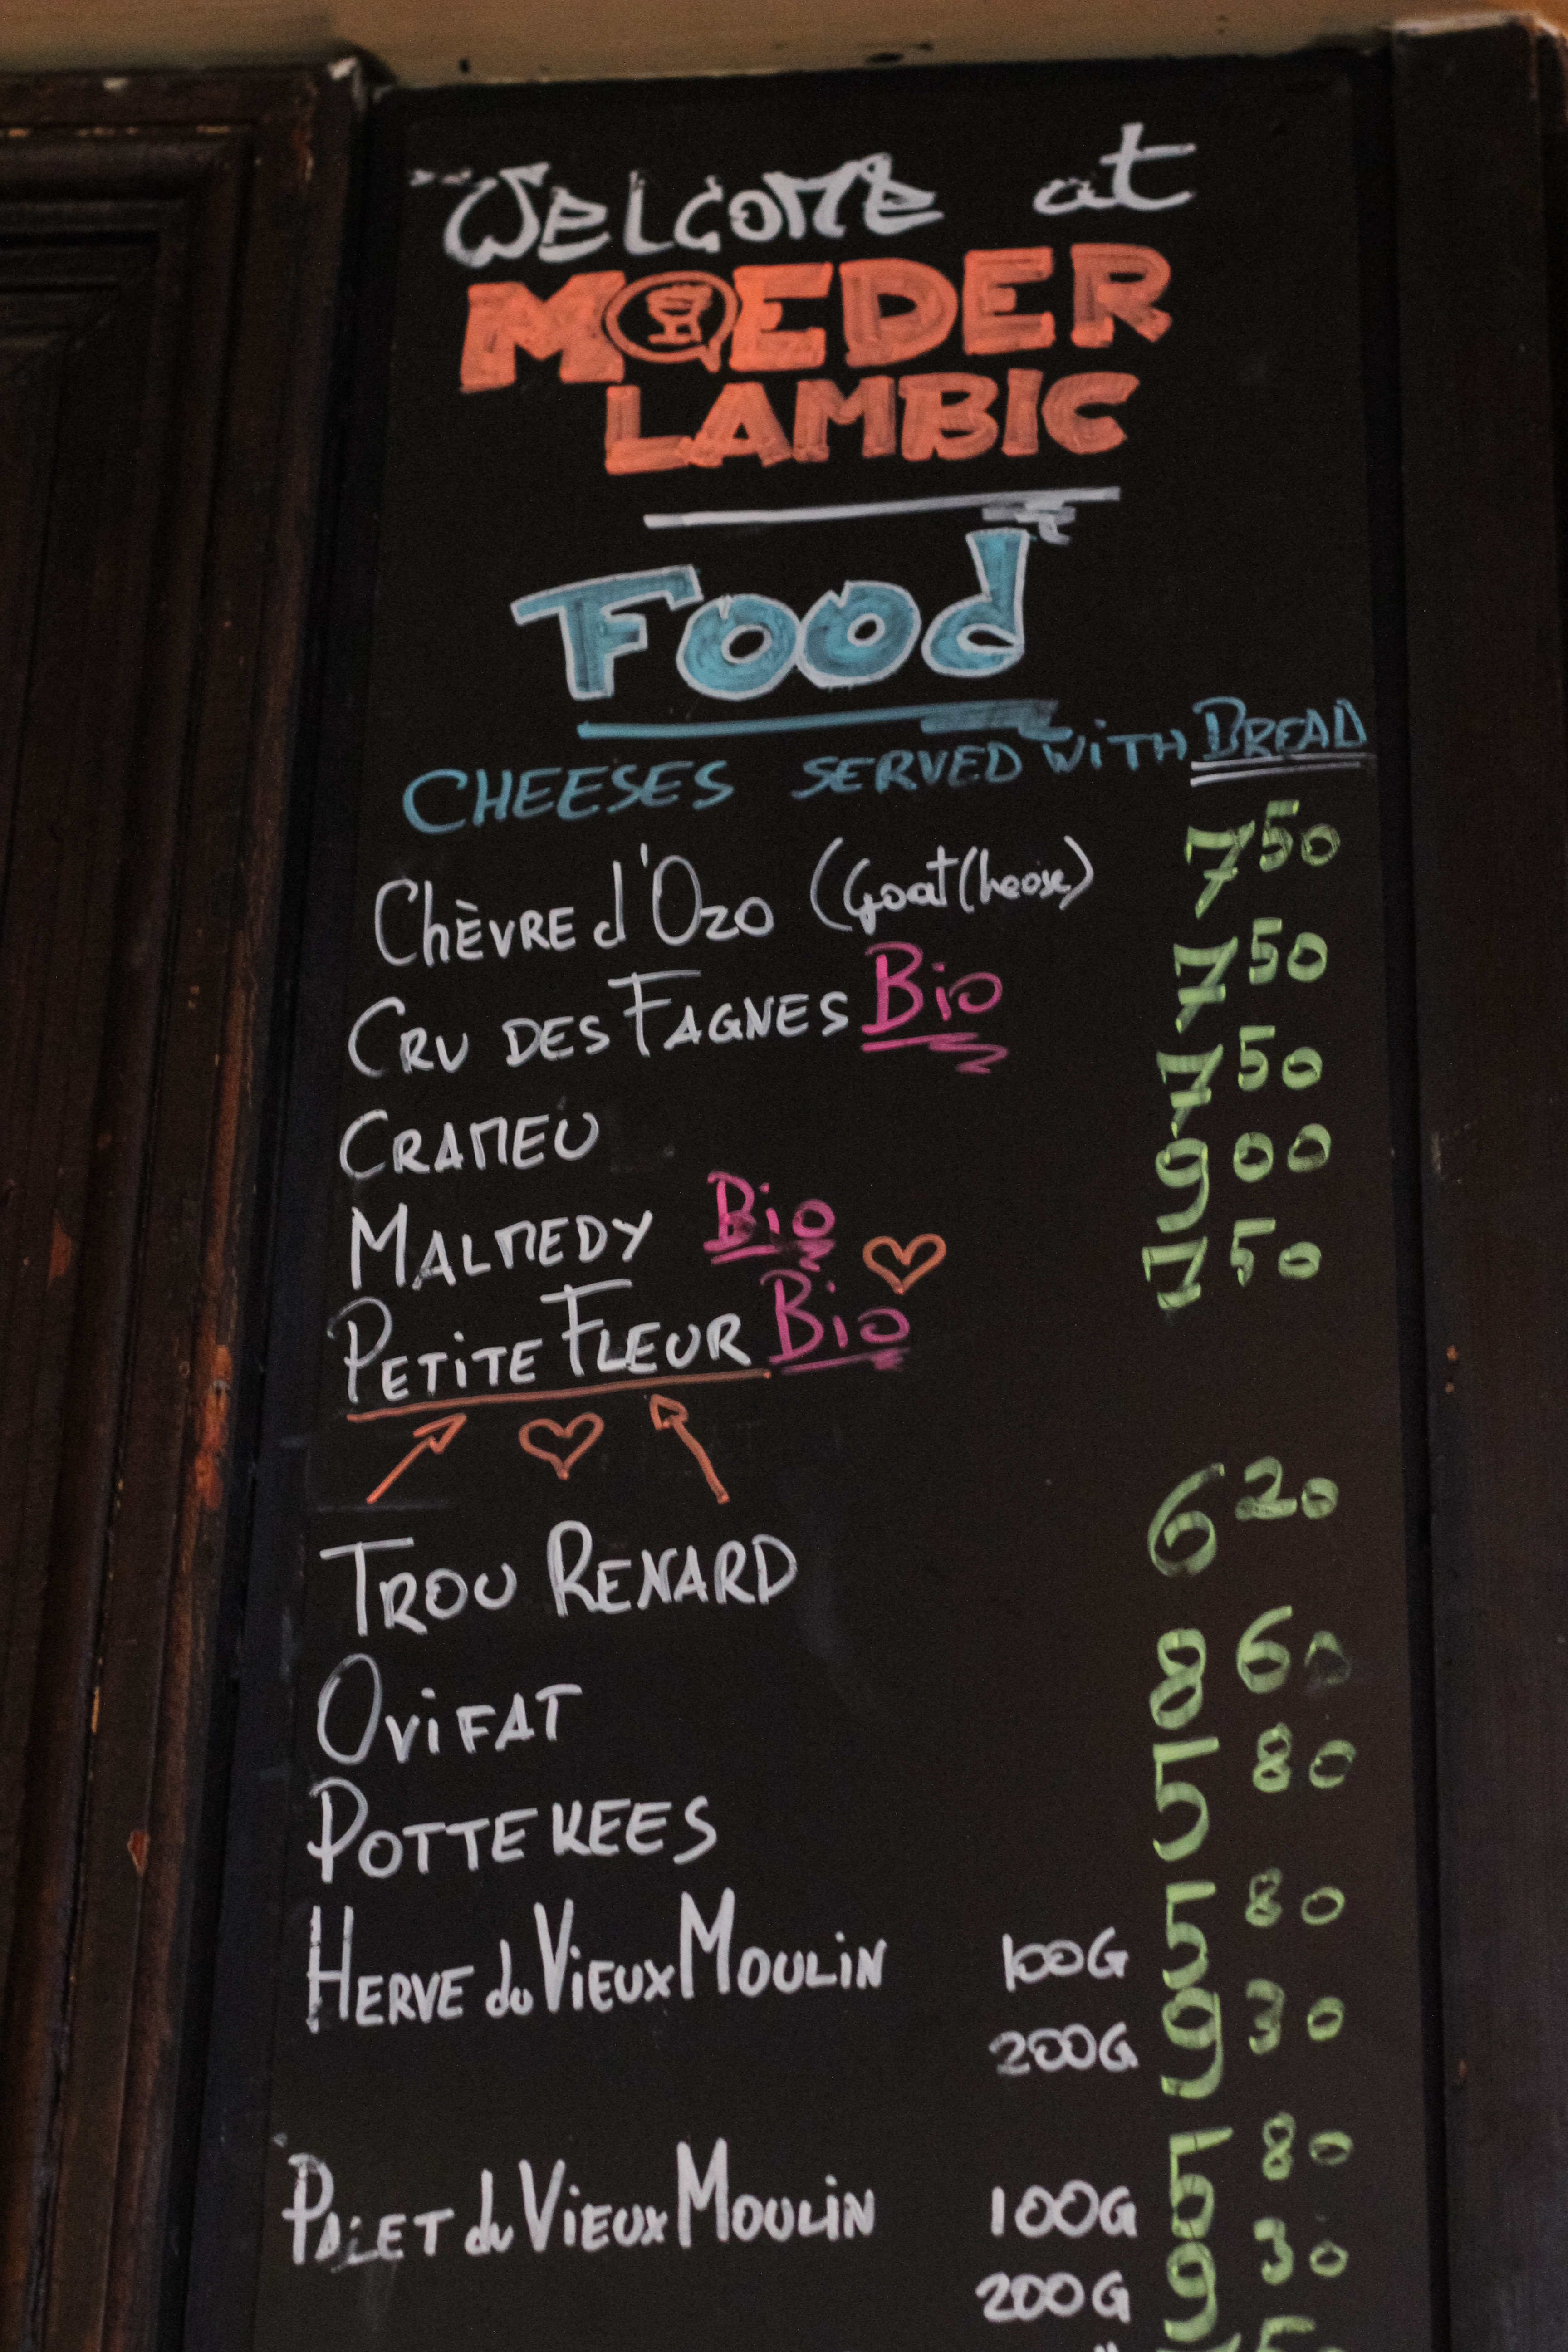 Welcome at
MOEDER
LAMBIC
Food
CHEESES SERVED WITH BREAD
Chèvre d'Ozo (Goat Cheese) 7 50
Cru des Fagnes Bio 7 50
Crameu 7 50
Malmedy Bio 9 00
Petite Fleur Bio 7 50
Trou Renard 6 20
Ovifat 8 60
Pottekees 5 80
Herve du Vieux Moulin 100G 5 80
200G 9 30
Palet du Vieux Moulin 100G 5 80
200G 9 30